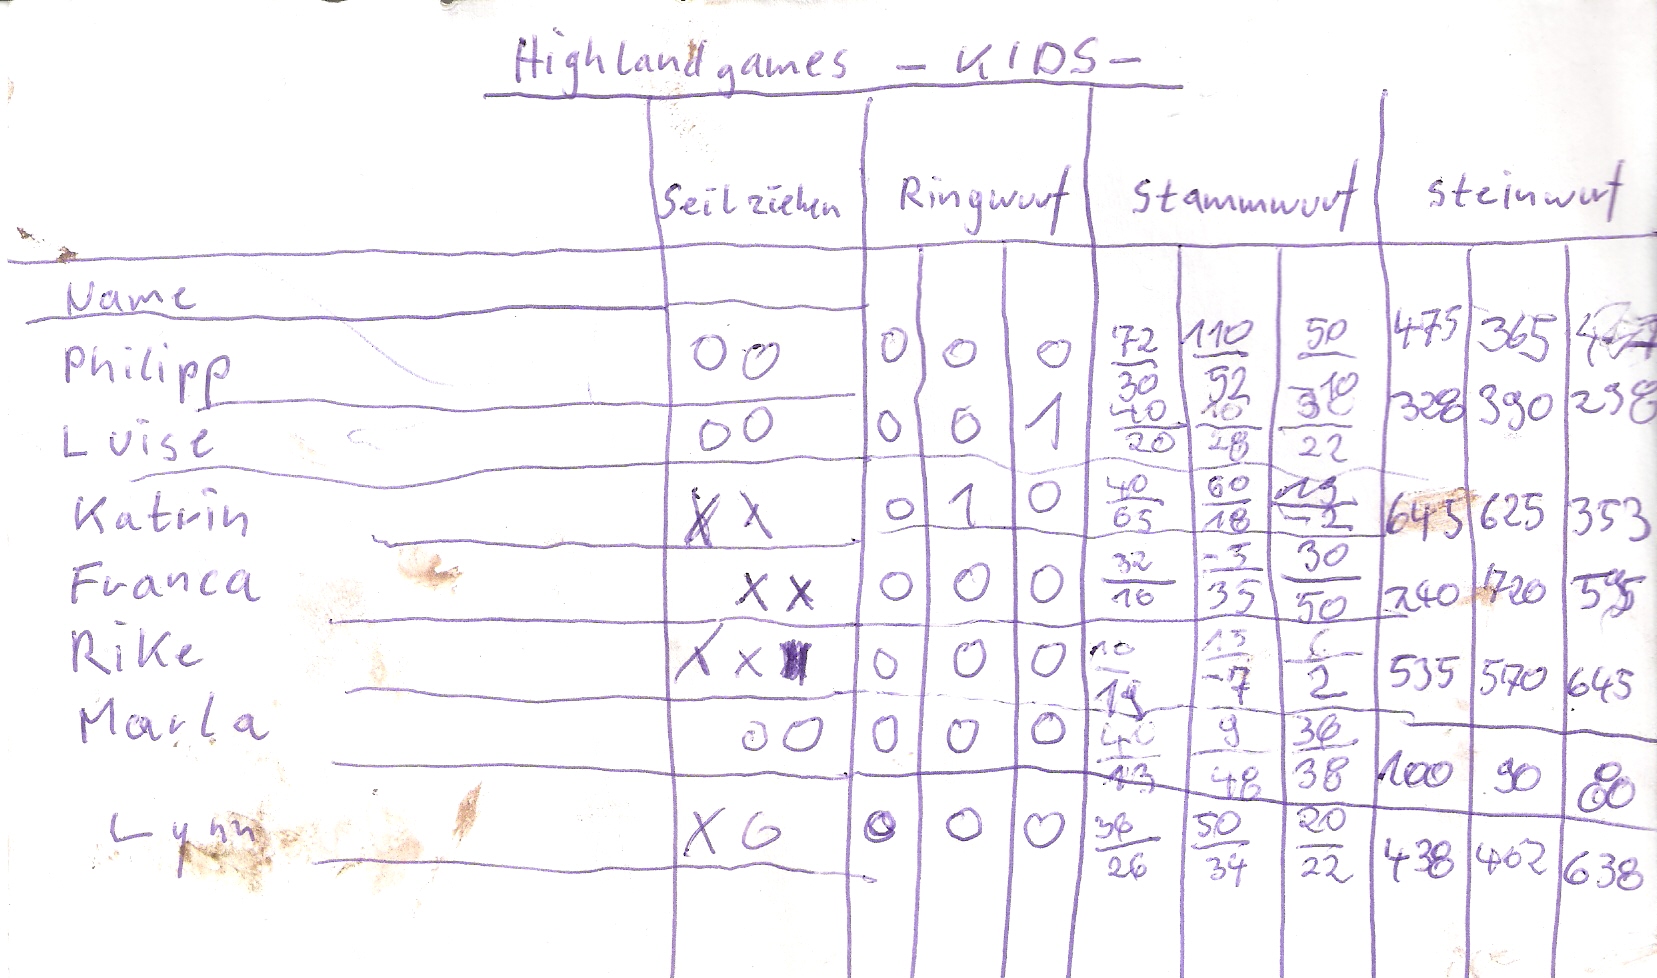 Highlandgames - KIDS -
Seilziehen Ringwurf Stammwurf Steinwurf
Name
Philipp OO O O O 72/30 110/52 50/-10 475 365
Luise OO O O 1 40/20 28 22 328 390 298
Katrin XX O 1 O 40/65 60/18 19/-2 645 625 353
Franca XX O O O 32/16 -3/35 30/50 240 720
Rike XX O O O 10/19 13/-7 2 535 570 645
Marla OO O O O 13 9/48 36/38 100 90 80
Lynn XO O O O 36/26 50/34 20/22 438 462 638